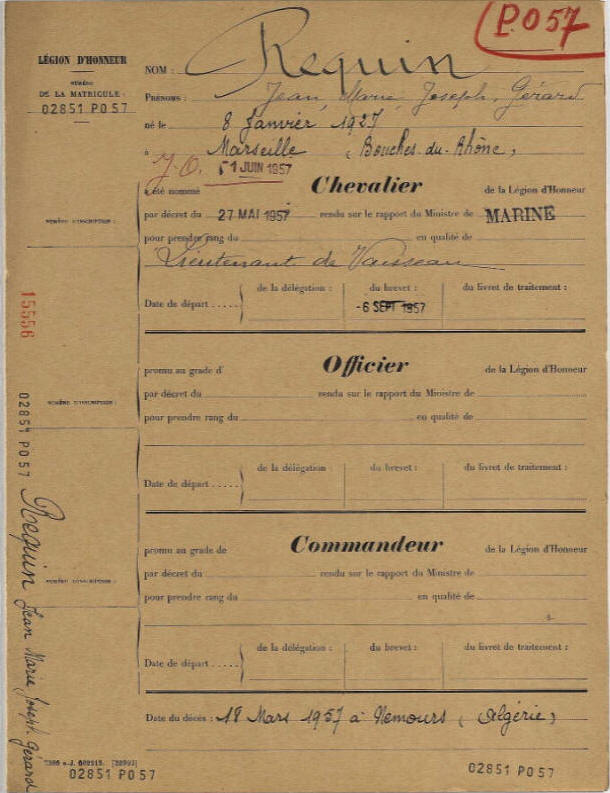 P.057
LÉGION D'HONNEUR
NUMÉRO
DE LA MATRICULE :
02851 PO57
NOM : Requin
PRÉNOMS : Jean, Marie, Joseph, Gérard
né le 8 Janvier 1927
à Marseille (Bouches-du-Rhône)
J.O. 1 JUIN 1957
a été nommé Chevalier de la Légion d'Honneur
NUMÉRO D'INSCRIPTION :
par décret du 27 MAI 1957 rendu sur le rapport du Ministre de MARINE
pour prendre rang du en qualité de
Lieutenant de Vaisseau
15556
Date de départ ..... de la délégation : du brevet : du livret de traitement :
-6 SEPT 1957
promu au grade d' Officier de la Légion d'Honneur
par décret du rendu sur le rapport du Ministre de
NUMÉRO D'INSCRIPTION :
pour prendre rang du en qualité de
02851 PO57
Date de départ ..... de la délégation : du brevet : du livret de traitement :
promu au grade de Commandeur de la Légion d'Honneur
par décret du rendu sur le rapport du Ministre de
NUMÉRO D'INSCRIPTION :
pour prendre rang du en qualité de
Requin Jean Marie Joseph Gérard
Date de départ ..... de la délégation : du brevet : du livret de traitement :
Date du décès : 18 Mars 1957 à Nemours (Algérie)
02851 PO57
02851 PO57